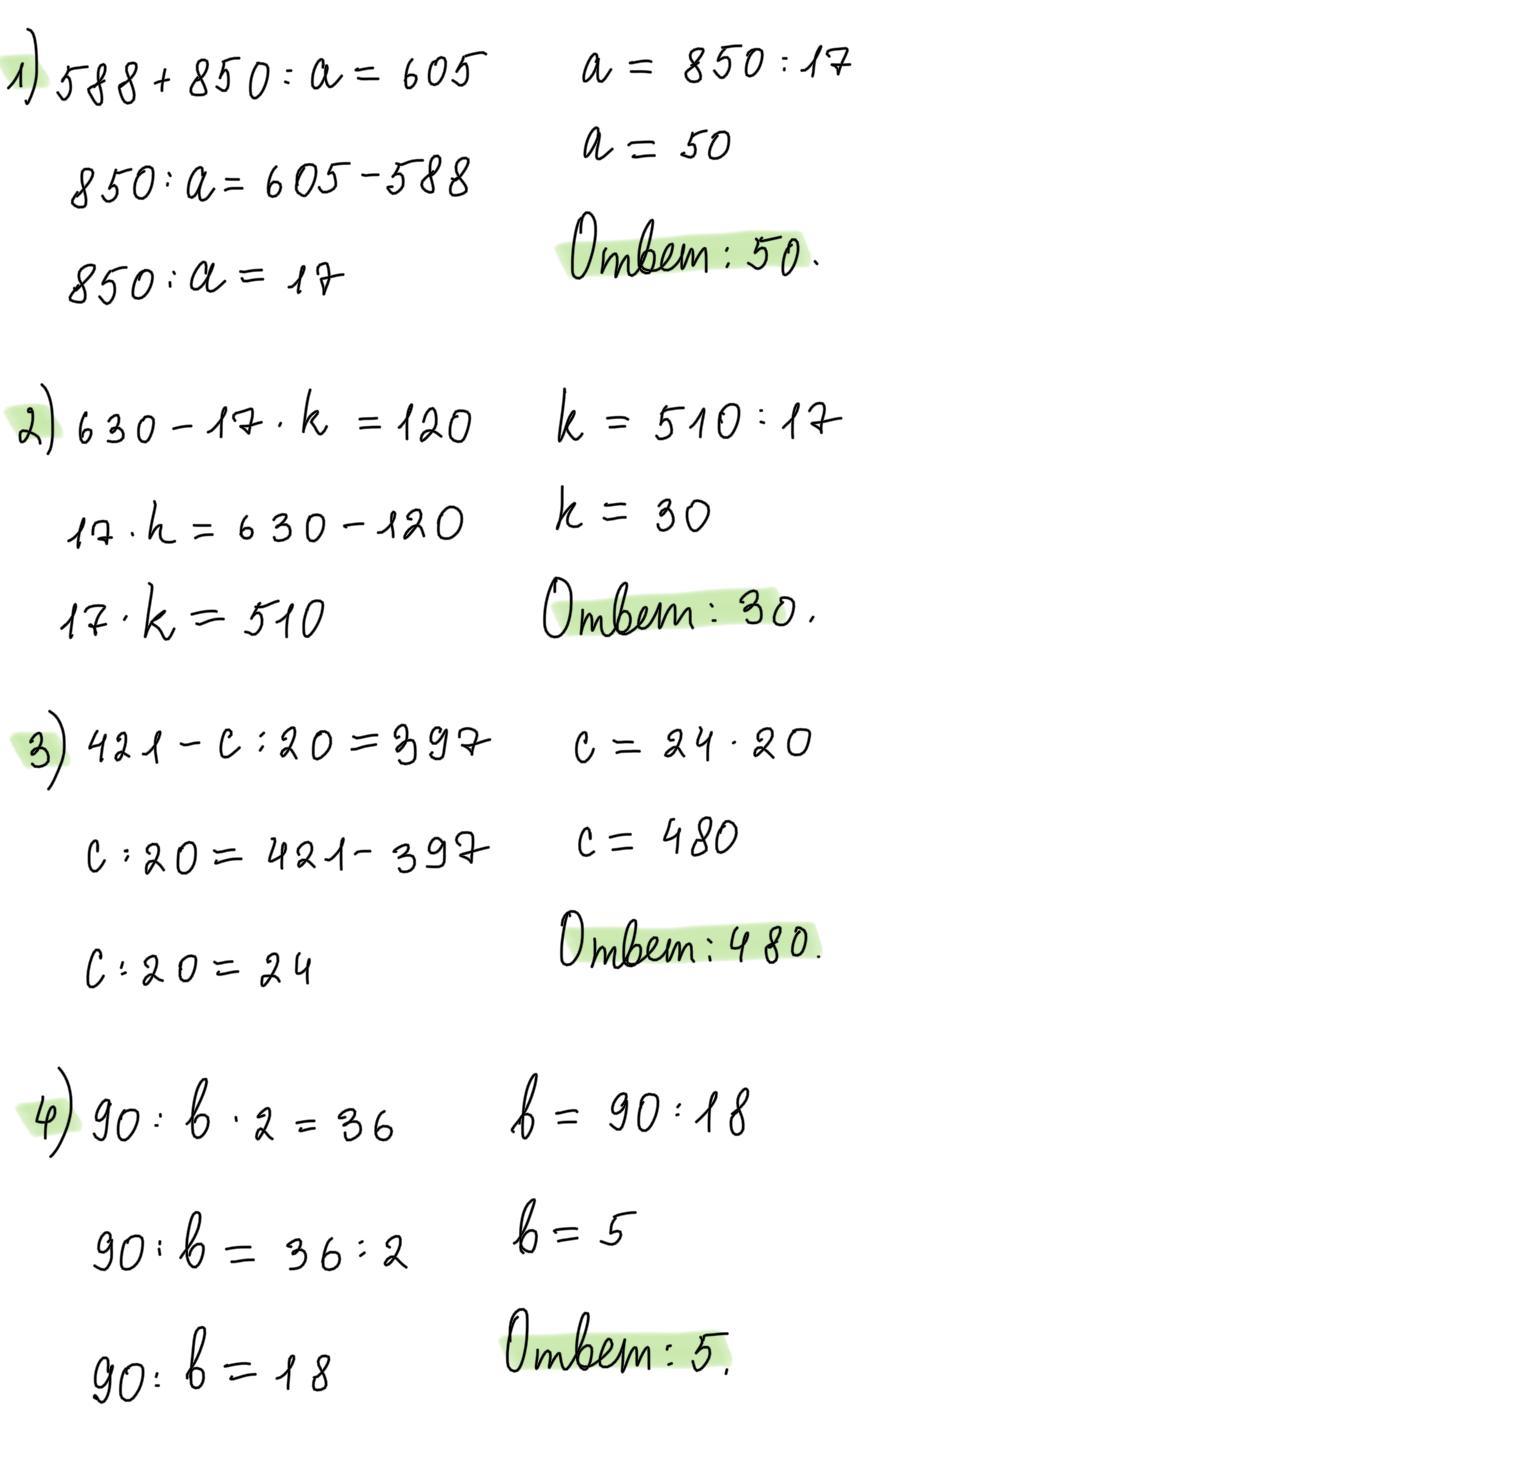 1) 588 + 850 : a = 605
850 : a = 605 - 588
850 : a = 17
a = 850 : 17
a = 50
Ответ: 50.
2) 630 - 17 · k = 120
17 · k = 630 - 120
17 · k = 510
k = 510 : 17
k = 30
Ответ: 30.
3) 421 - c : 20 = 397
c : 20 = 421 - 397
c : 20 = 24
c = 24 · 20
c = 480
Ответ: 480.
4) 90 : b · 2 = 36
90 : b = 36 : 2
90 : b = 18
b = 90 : 18
b = 5
Ответ: 5.